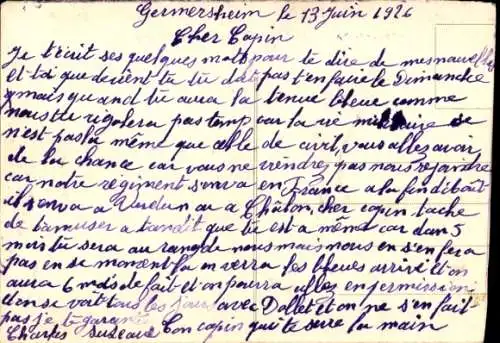 Germersheim le 13 Juin 1926
Cher Copin
Je t'ecrit ses quelques mots pour te dire de mes nouvelles
et toi que devient tu tu dois pas t'en faire le Dimanche
mais quand tu aura la tenue bleue comme
nous tu rigolera pas temp car la vie militaire se
n'est pas la même que celle de civil, vous allez avoir
de la chance car vous ne viendrez pas nous rejoindre
car notre régiment s'en va en France a la fin d'Août
il s'en va a Verdun ou a Châlon, cher copin tache
de t'amuser a tandit que tu est a même car dans 5
mois tu sera au rang de nous mais nous en s'en fera
pas en se moment la on verra les bleues arrivé et on
aura 6 mois de fait et on pourra allez en permission
on se voit tous les jours avec Dollet et on ne s'en fait
pas je te garantie
Charles Ton copin qui te serre la main